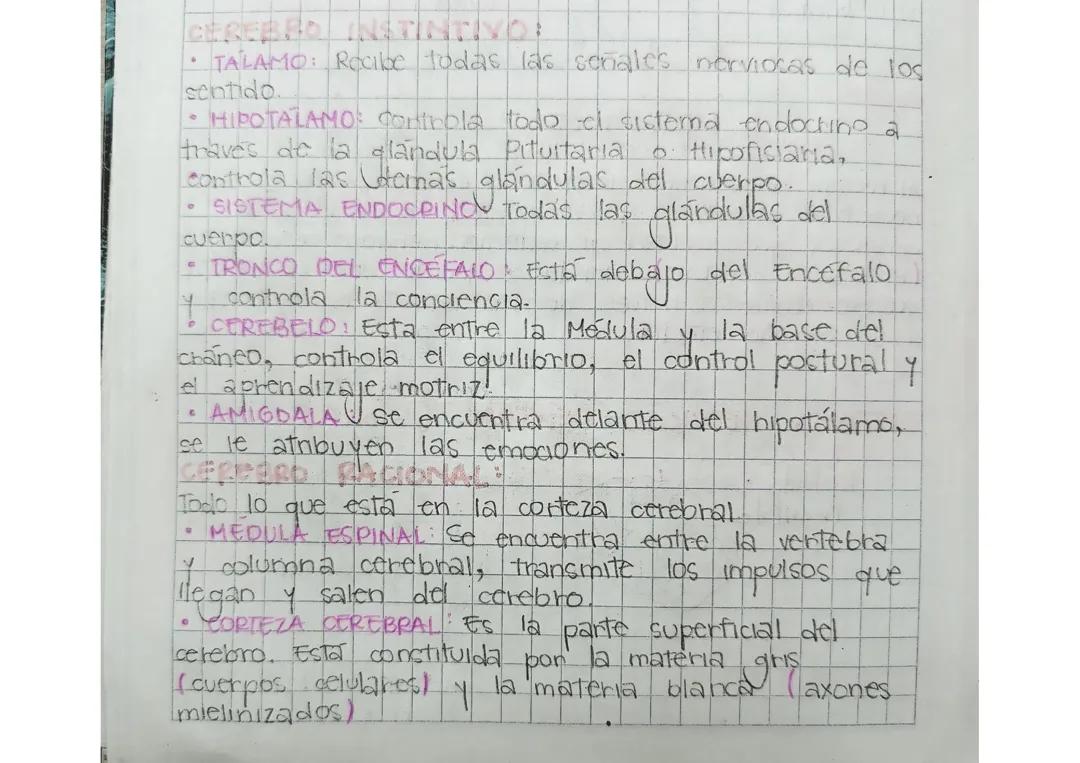 CEREBRO INSTINTIVO:
• TÁLAMO: Recibe todas las señales nerviosas de los
sentido.
• HIPOTÁLAMO: controla todo el sistema endocrino a
través de la glándula Pituitaria o Hipofisiaria,
controla las demás glándulas del cuerpo.
• SISTEMA ENDOCRINO: Todas las glándulas del
cuerpo.
• TRONCO DEL ENCÉFALO: Está debajo del Encéfalo
y controla la conciencia.
• CEREBELO: Esta entre la Médula y la base del
cráneo, controla el equilibrio, el control postural y
el aprendizaje motriz.
• AMIGDALA: Se encuentra delante del hipotálamo,
se le atribuyen las emociones.
CEREBRO RACIONAL:
Todo lo que está en la corteza cerebral
• MÉDULA ESPINAL: Se encuentra entre la vertebra
y columna cerebral, transmite los impulsos que
llegan y salen del cerebro.
• CORTEZA CEREBRAL: Es la parte superficial del
cerebro. Está constituida por la materia gris
(cuerpos celulares) y la materia blanca (axones
mielinizados)